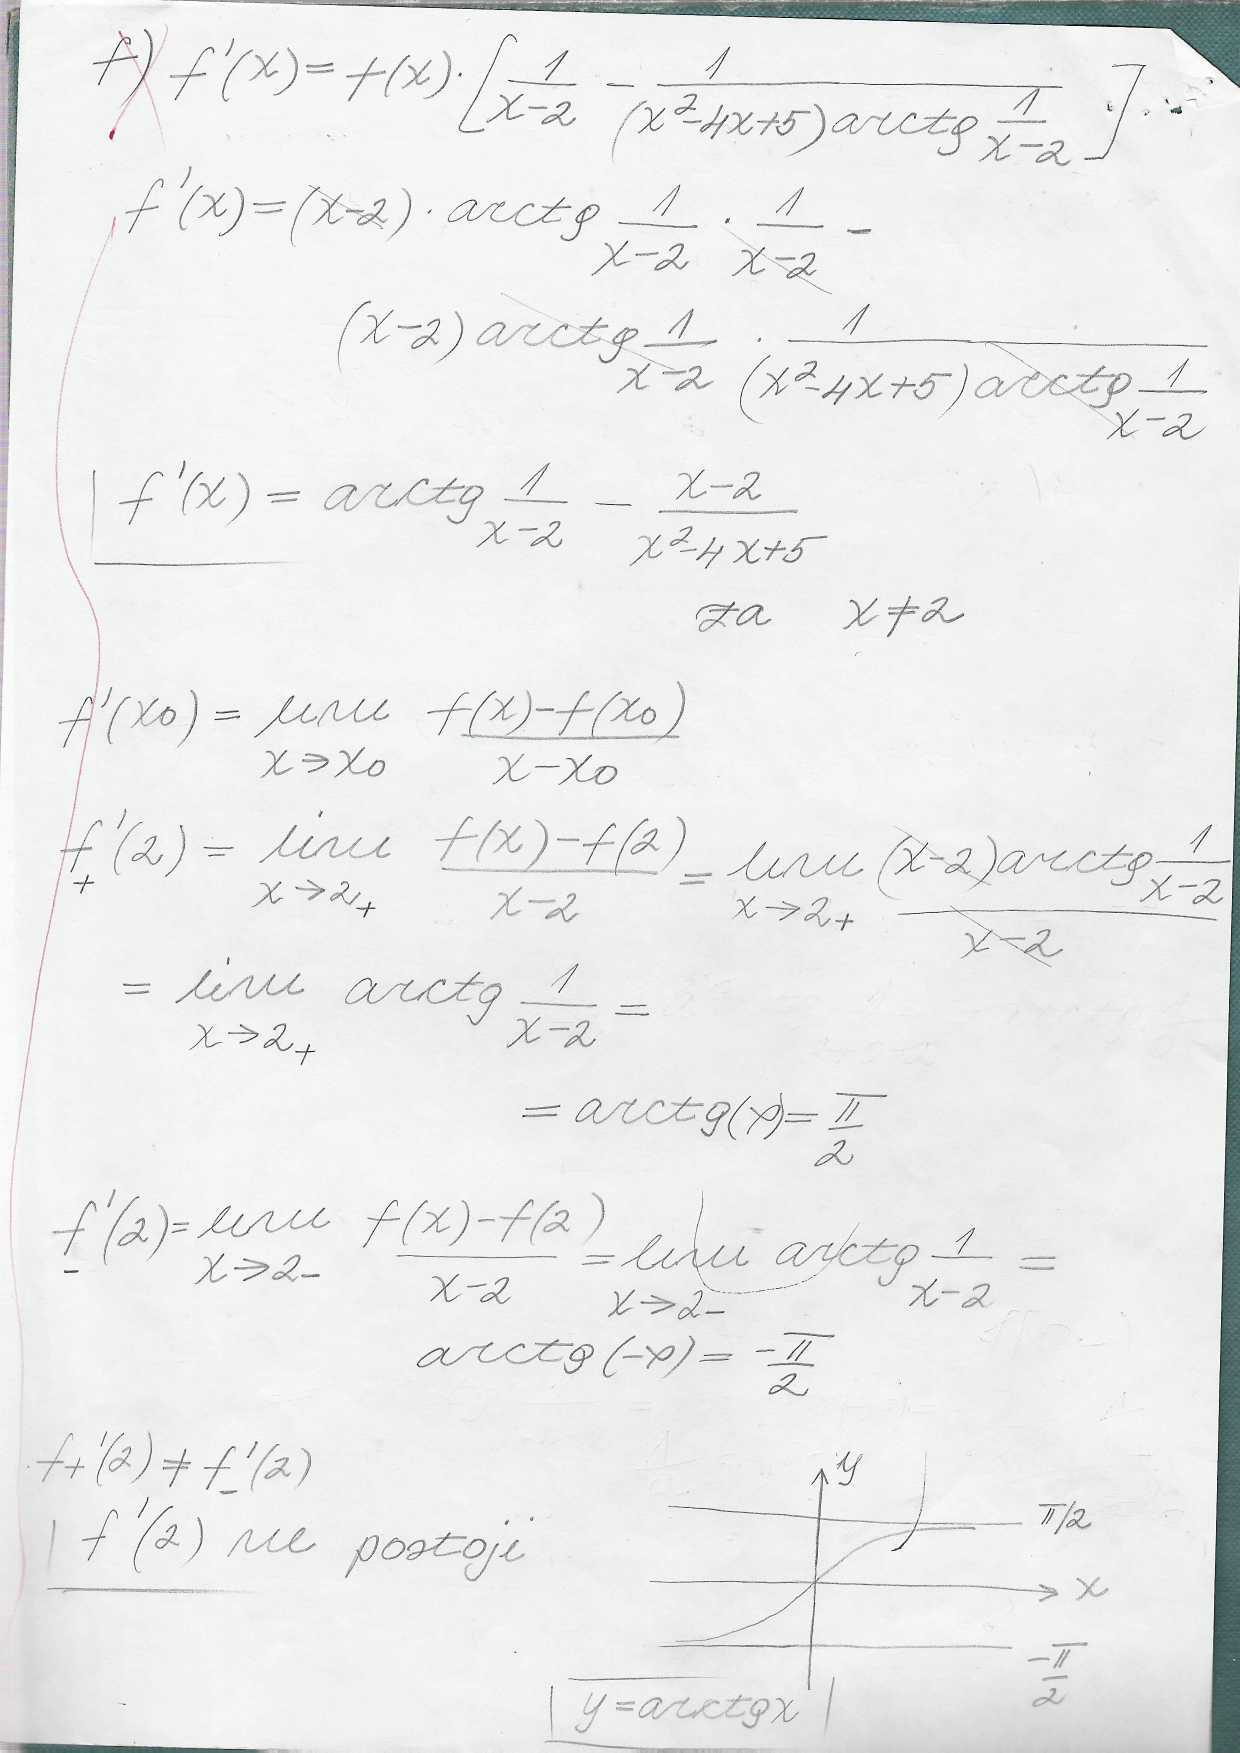 f) f'(x) = f(x) · [ 1/(x-2) - 1/((x²-4x+5) arctg 1/(x-2)) ]
f'(x) = (x-2) · arctg 1/(x-2) · 1/(x-2) -
(x-2) arctg 1/(x-2) · 1/((x²-4x+5) arctg 1/(x-2))
f'(x) = arctg 1/(x-2) - (x-2)/(x²-4x+5)
za x≠2
f'(x0) = lim x→x0 (f(x)-f(x0))/(x-x0)
f'+(2) = lim x→2+ (f(x)-f(2))/(x-2) = lim x→2+ ((x-2) arctg 1/(x-2))/(x-2)
= lim x→2+ arctg 1/(x-2) =
= arctg(∞) = π/2
f'-(2) = lim x→2- (f(x)-f(2))/(x-2) = lim x→2- arctg 1/(x-2) =
arctg(-∞) = -π/2
f+'(2) ≠ f-'(2)
f'(2) ne postoji
y
π/2
x
-π/2
y = arctgx